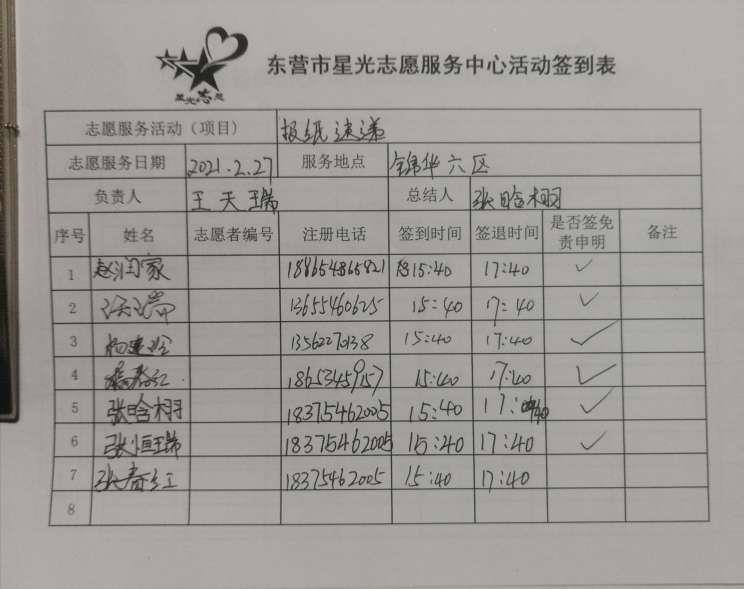 星光志愿
东营市星光志愿服务中心活动签到表
志愿服务活动（项目） 报纸速递
志愿服务日期 2021.2.27 服务地点 锦华六区
负责人 王天瑞 总结人 张晗栩
序号 姓名 志愿者编号 注册电话 签到时间 签退时间 是否签免责申明 备注
1 赵润家 18865486821 15:40 17:40 ✓
2 13655460625 15:40 17:40 ✓
3 13562270138 15:40 17:40 ✓
4 18653459157 15:40 17:40 ✓
5 张晗栩 18375462005 15:40 17:40 ✓
6 张恒瑞 18375462005 15:40 17:40 ✓
7 张春红 18375462005 15:40 17:40
8